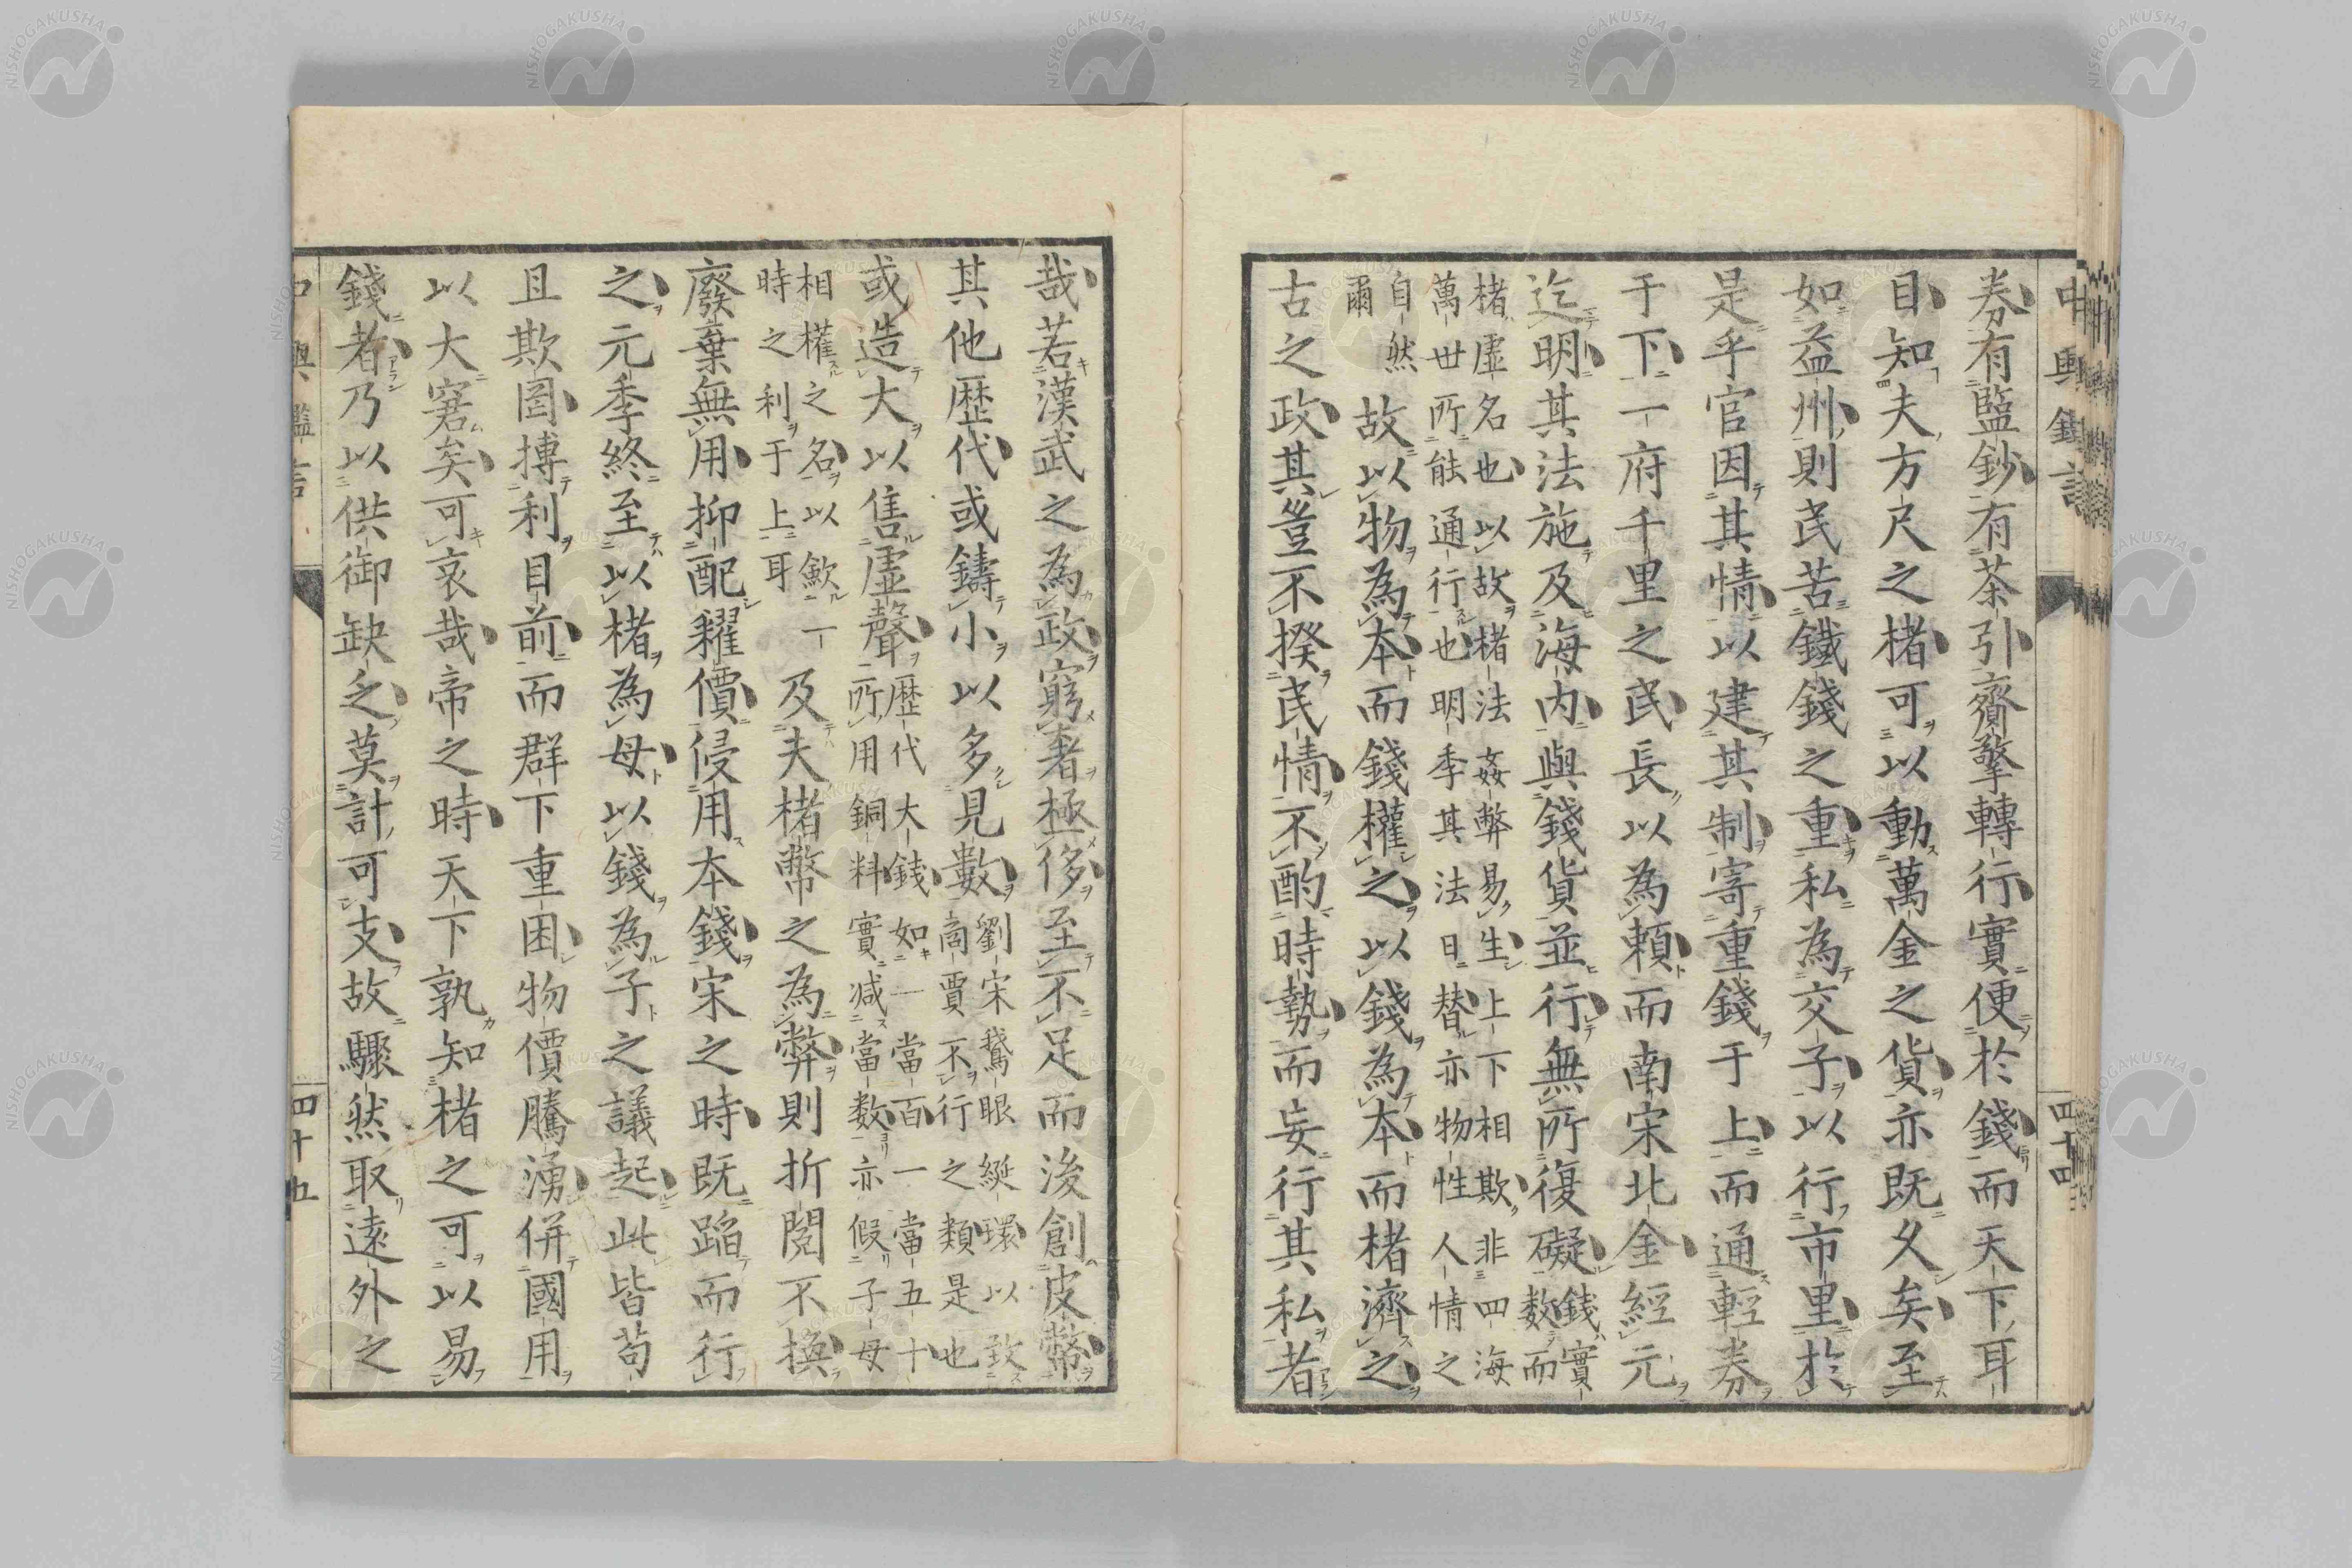 券有鹽鈔有茶引齎擎轉行實便於錢而天下耳
目知夫方尺之楮可以動萬金之貨亦既久矣至
如益州則民苦鐵錢之重私為交子以行市里於
是乎官因其情以建其制寄重錢于上而通輕券
于下一府千里之民長以為賴而南宋北金經元
迄明其法施及海内與錢貨並行無所復礙錢實数而
楮虛名也以故楮法姦弊易生上下相欺非四海
萬世所能通行也明季其法日替亦物性人情之
自然
爾
故以物為本而錢權之以錢為本而楮濟之
古之政其豈不揆民情不酌時勢而妄行其私者
哉若漢武之為政窮奢極侈至不足而後創皮幣
其他歴代或鑄小以多見數劉宋鵞眼綖環以致
商賈不行之類是也
或造大以售虛聲歴代大錢如一當百一當五十
所用銅料實減當数亦假子母
相權之名以歛一
時之利于上耳
及夫楮幣之為弊則折閱不換
廢棄無用抑配糴價侵用本錢宋之時既蹈而行
之元季終至以楮為母以錢為子之議起此皆苟
且欺圖摶利目前而群下重困物價騰湧併國用
以大窘矣可哀哉帝之時天下孰知楮之可以易
錢者乃以供御缺乏莫計可支故驟然取遠外之
四十四
四十五